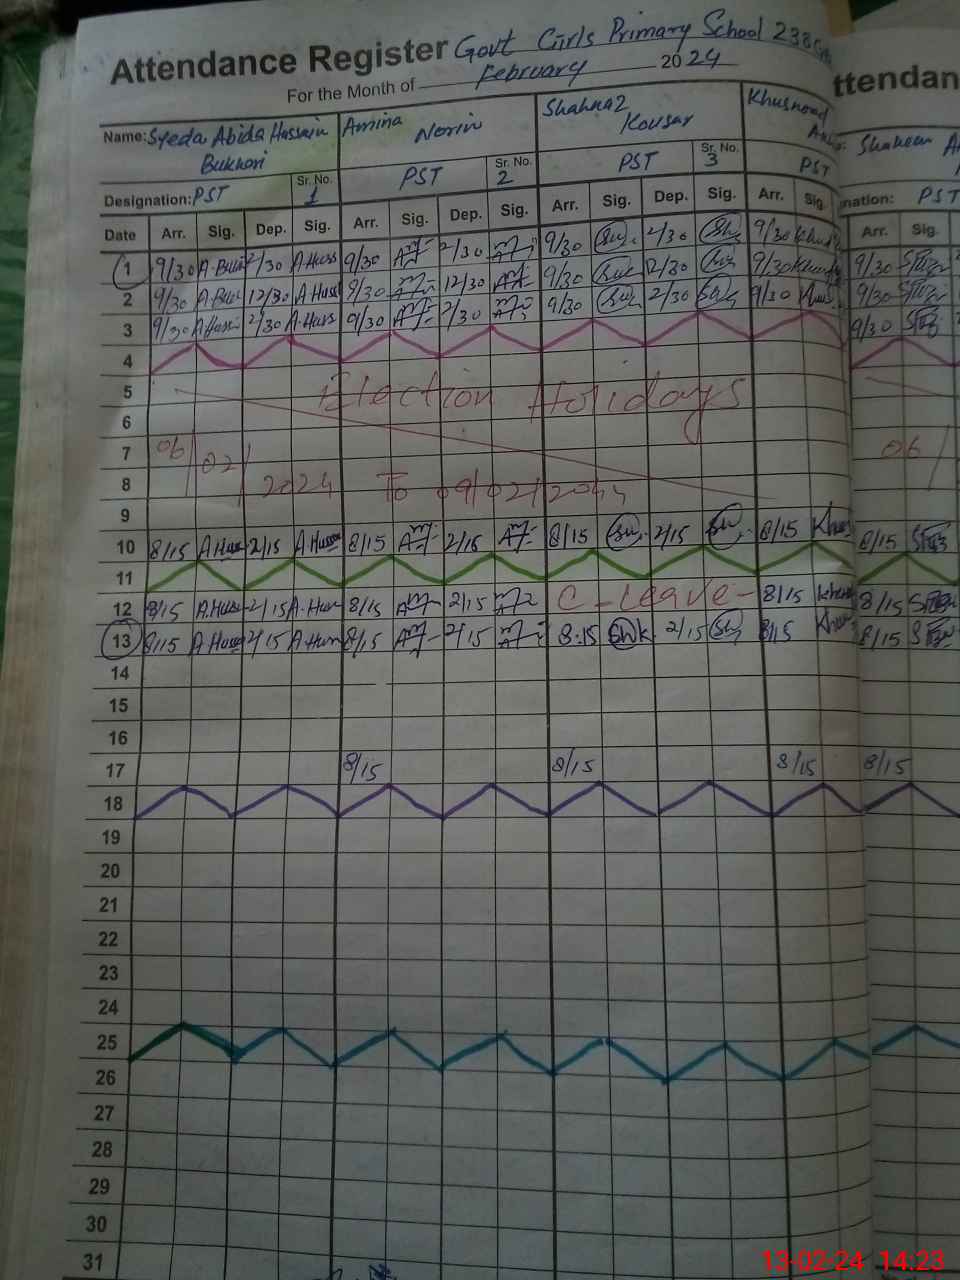 Attendance Register Govt Girls Primary School 238
For the Month of February 2024
ttendan
Name: Syeda Abida Hussain Bukhari
Amina Norin
Shahnaz Kousar
Khusnood
Shaheen
Designation: PST Sr. No. 1 PST Sr. No. 2 PST Sr. No. 3 PST nation: PST
Date Arr. Sig. Dep. Sig. Arr. Sig. Dep. Sig. Arr. Sig. Dep. Sig. Arr. Sig. Arr. Sig.
1 9/30 2/30 A.Huss 9/30 2/30 9/30 2/30 9/30 9/30
2 9/30 12/30 A.Huss 9/30 12/30 9/30 12/30 9/30 9/30
3 9/30 2/30 A.Huss 9/30 2/30 9/30 2/30 9/30 9/30
4
5 Election Holidays
6
7 06/02/ 06/
8 2024 To 09/02/2024
9
10 8/15 A.Huss 2/15 A.Huss 8/15 2/15 8/15 2/15 8/15 8/15
11
12 8/15 A.Huss 2/15 A.Huss 8/15 2/15 C-Leave- 8/15 8/15
13 8/15 A.Huss 2/15 A.Huss 8/15 2/15 8:15 Shk 2/15 8/15 8/15
14
15
16
17 8/15 8/15 8/15 8/15
18
19
20
21
22
23
24
25
26
27
28
29
30
31
13-02-24 14:23